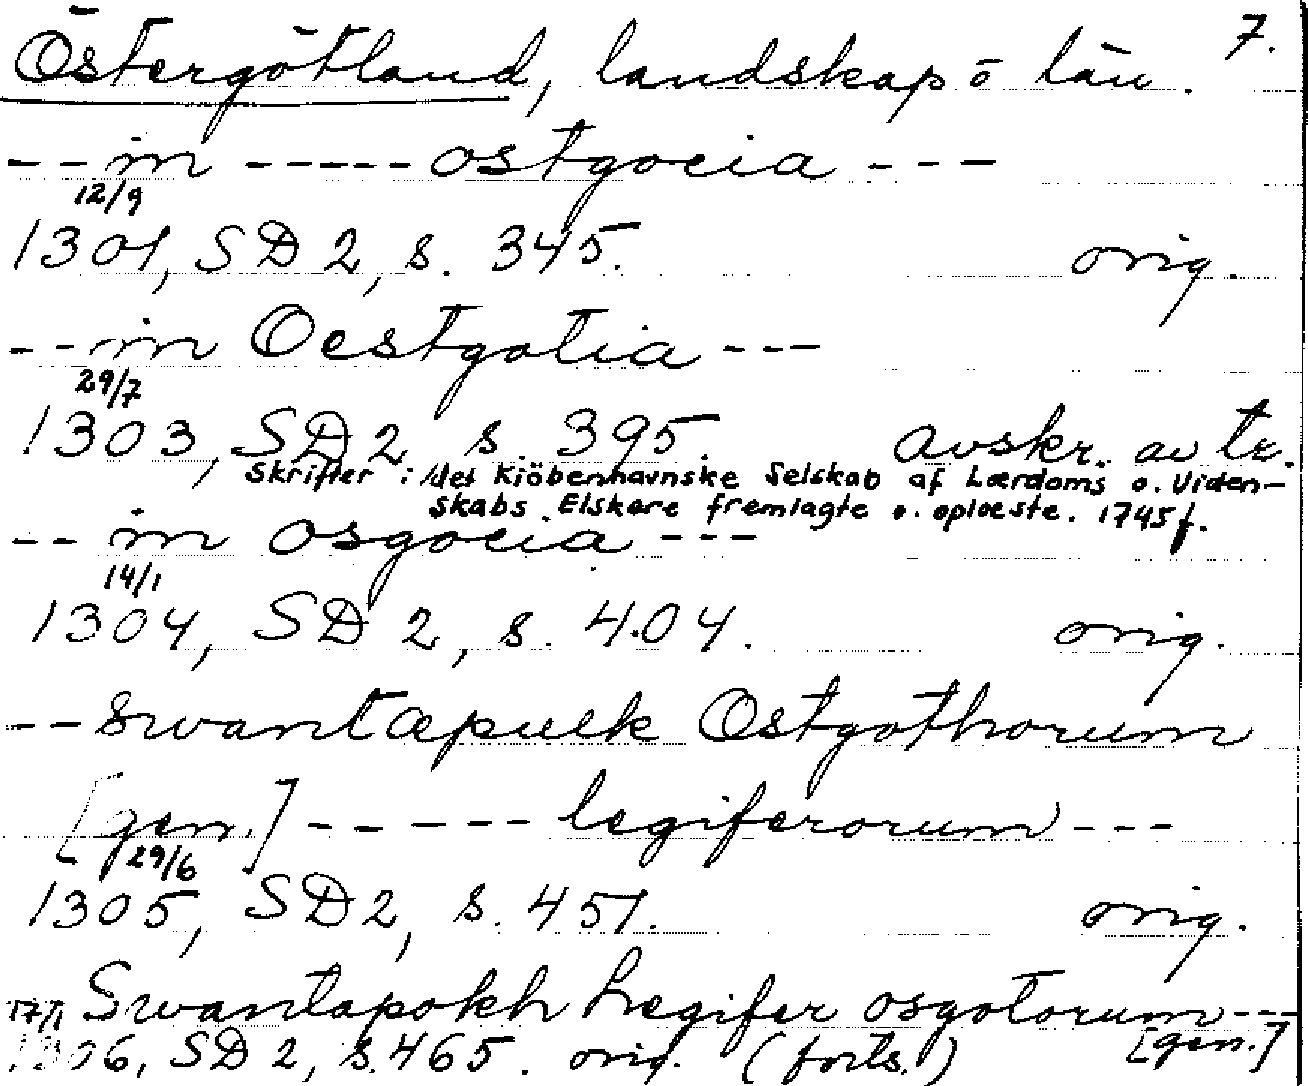 7.
Östergötland, landskap o län.
-- in ----- ostgocia ---
12/9
1301, SD 2, s. 345. orig.
-- in Oestgotia ---
29/7
1303, SD 2 s. 395. avskr. av tr.
Skrifter i det Kiöbenhavnske Selskab af Lærdoms o. Viden-
skabs Elskere fremlagte o. oplæste. 1745 f.
-- in osgocia ---
14/1
1304, SD 2, s. 404. orig.
-- Swantæpulk Ostgothorum
[gen.] ----- legiferorum ---
29/6
1305, SD 2, s. 451. orig.
Swantapokh Legifer osgotorum ---
17/1 [gen.]
1306, SD 2, s. 465. orig. (forts.)